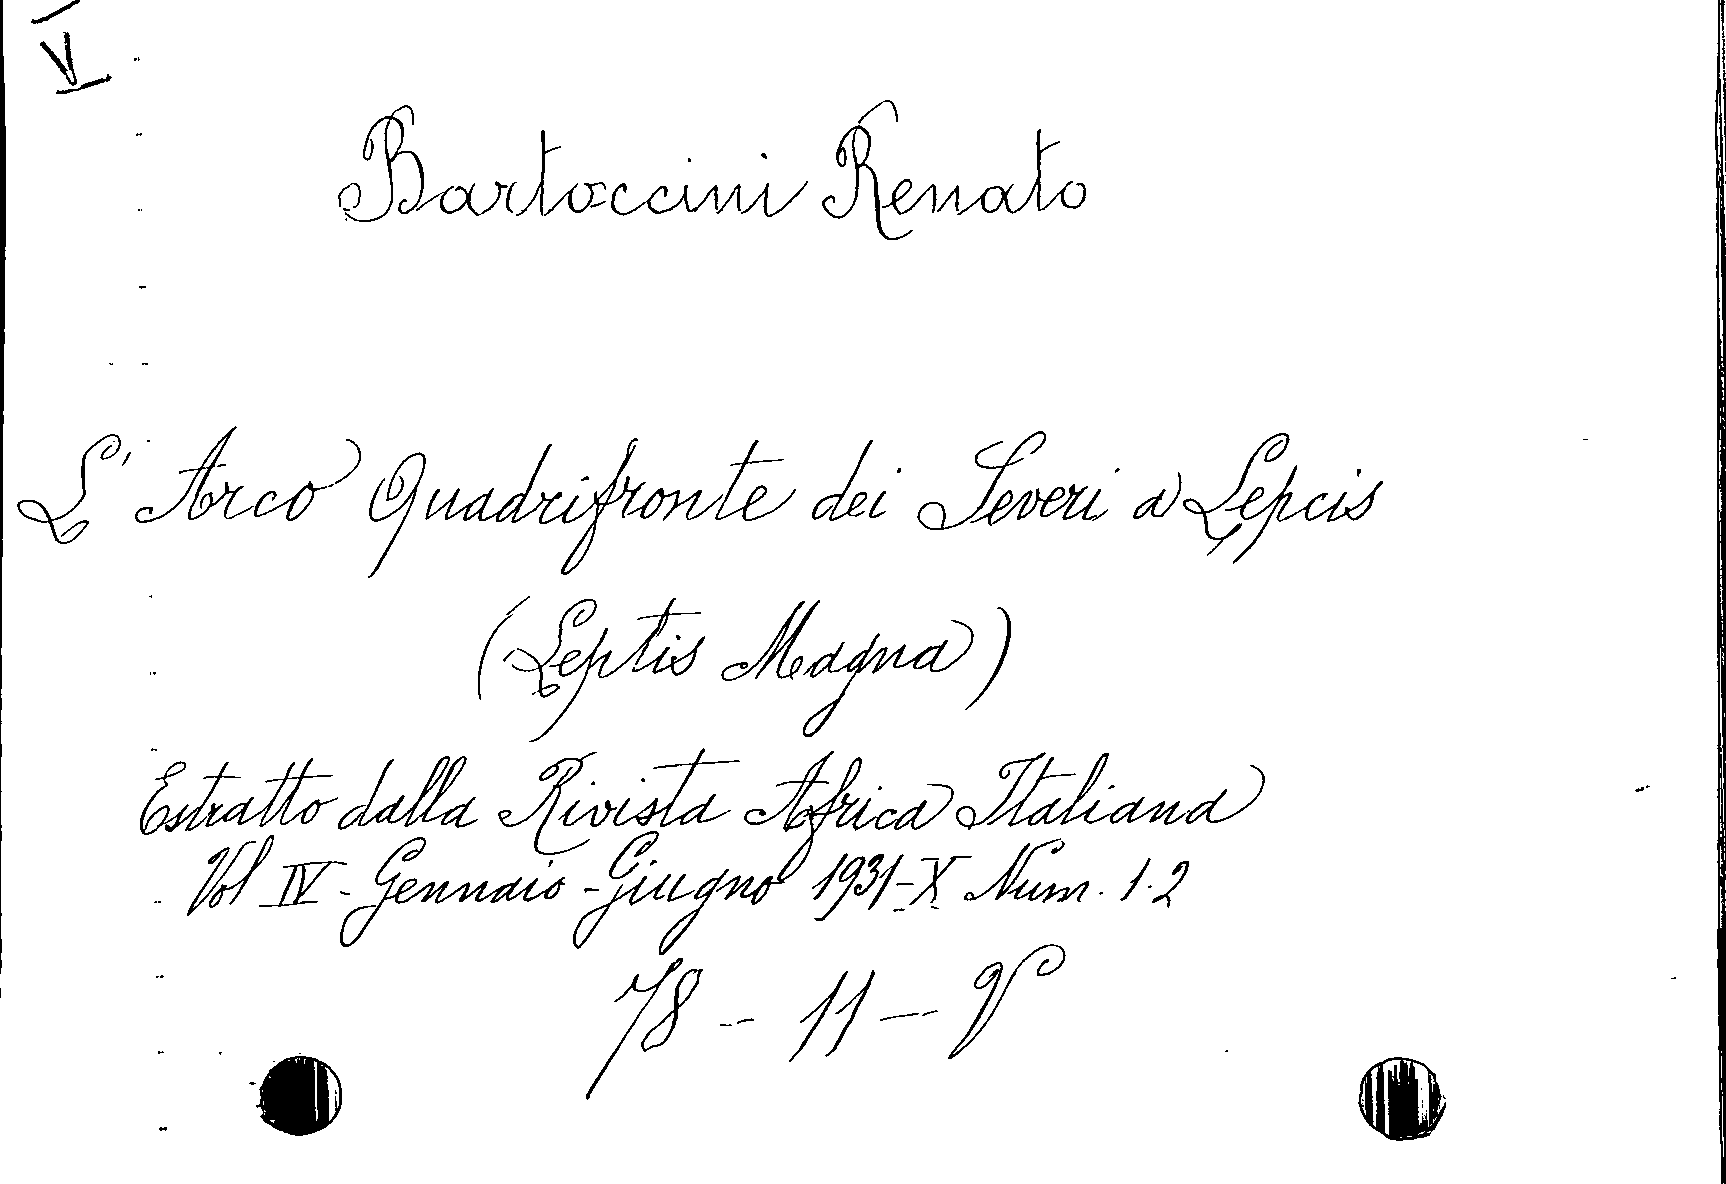 V
Bartoccini Renato
L'Arco Quadrifronte dei Severi a Lepcis
(Leptis Magna)
Estratto dalla Rivista Africa Italiana
Vol IV - Gennaio - Giugno 1931-X Num. 1.2
78 - 11 - V